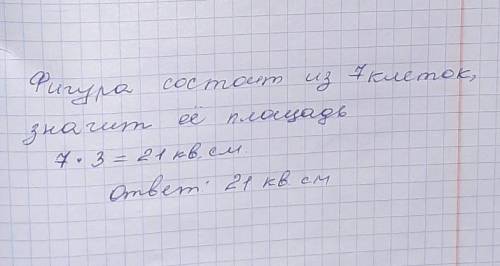 Фигура состоит из 7 клеток,
значит её площадь
7 · 3 = 21 кв. см
Ответ: 21 кв. см